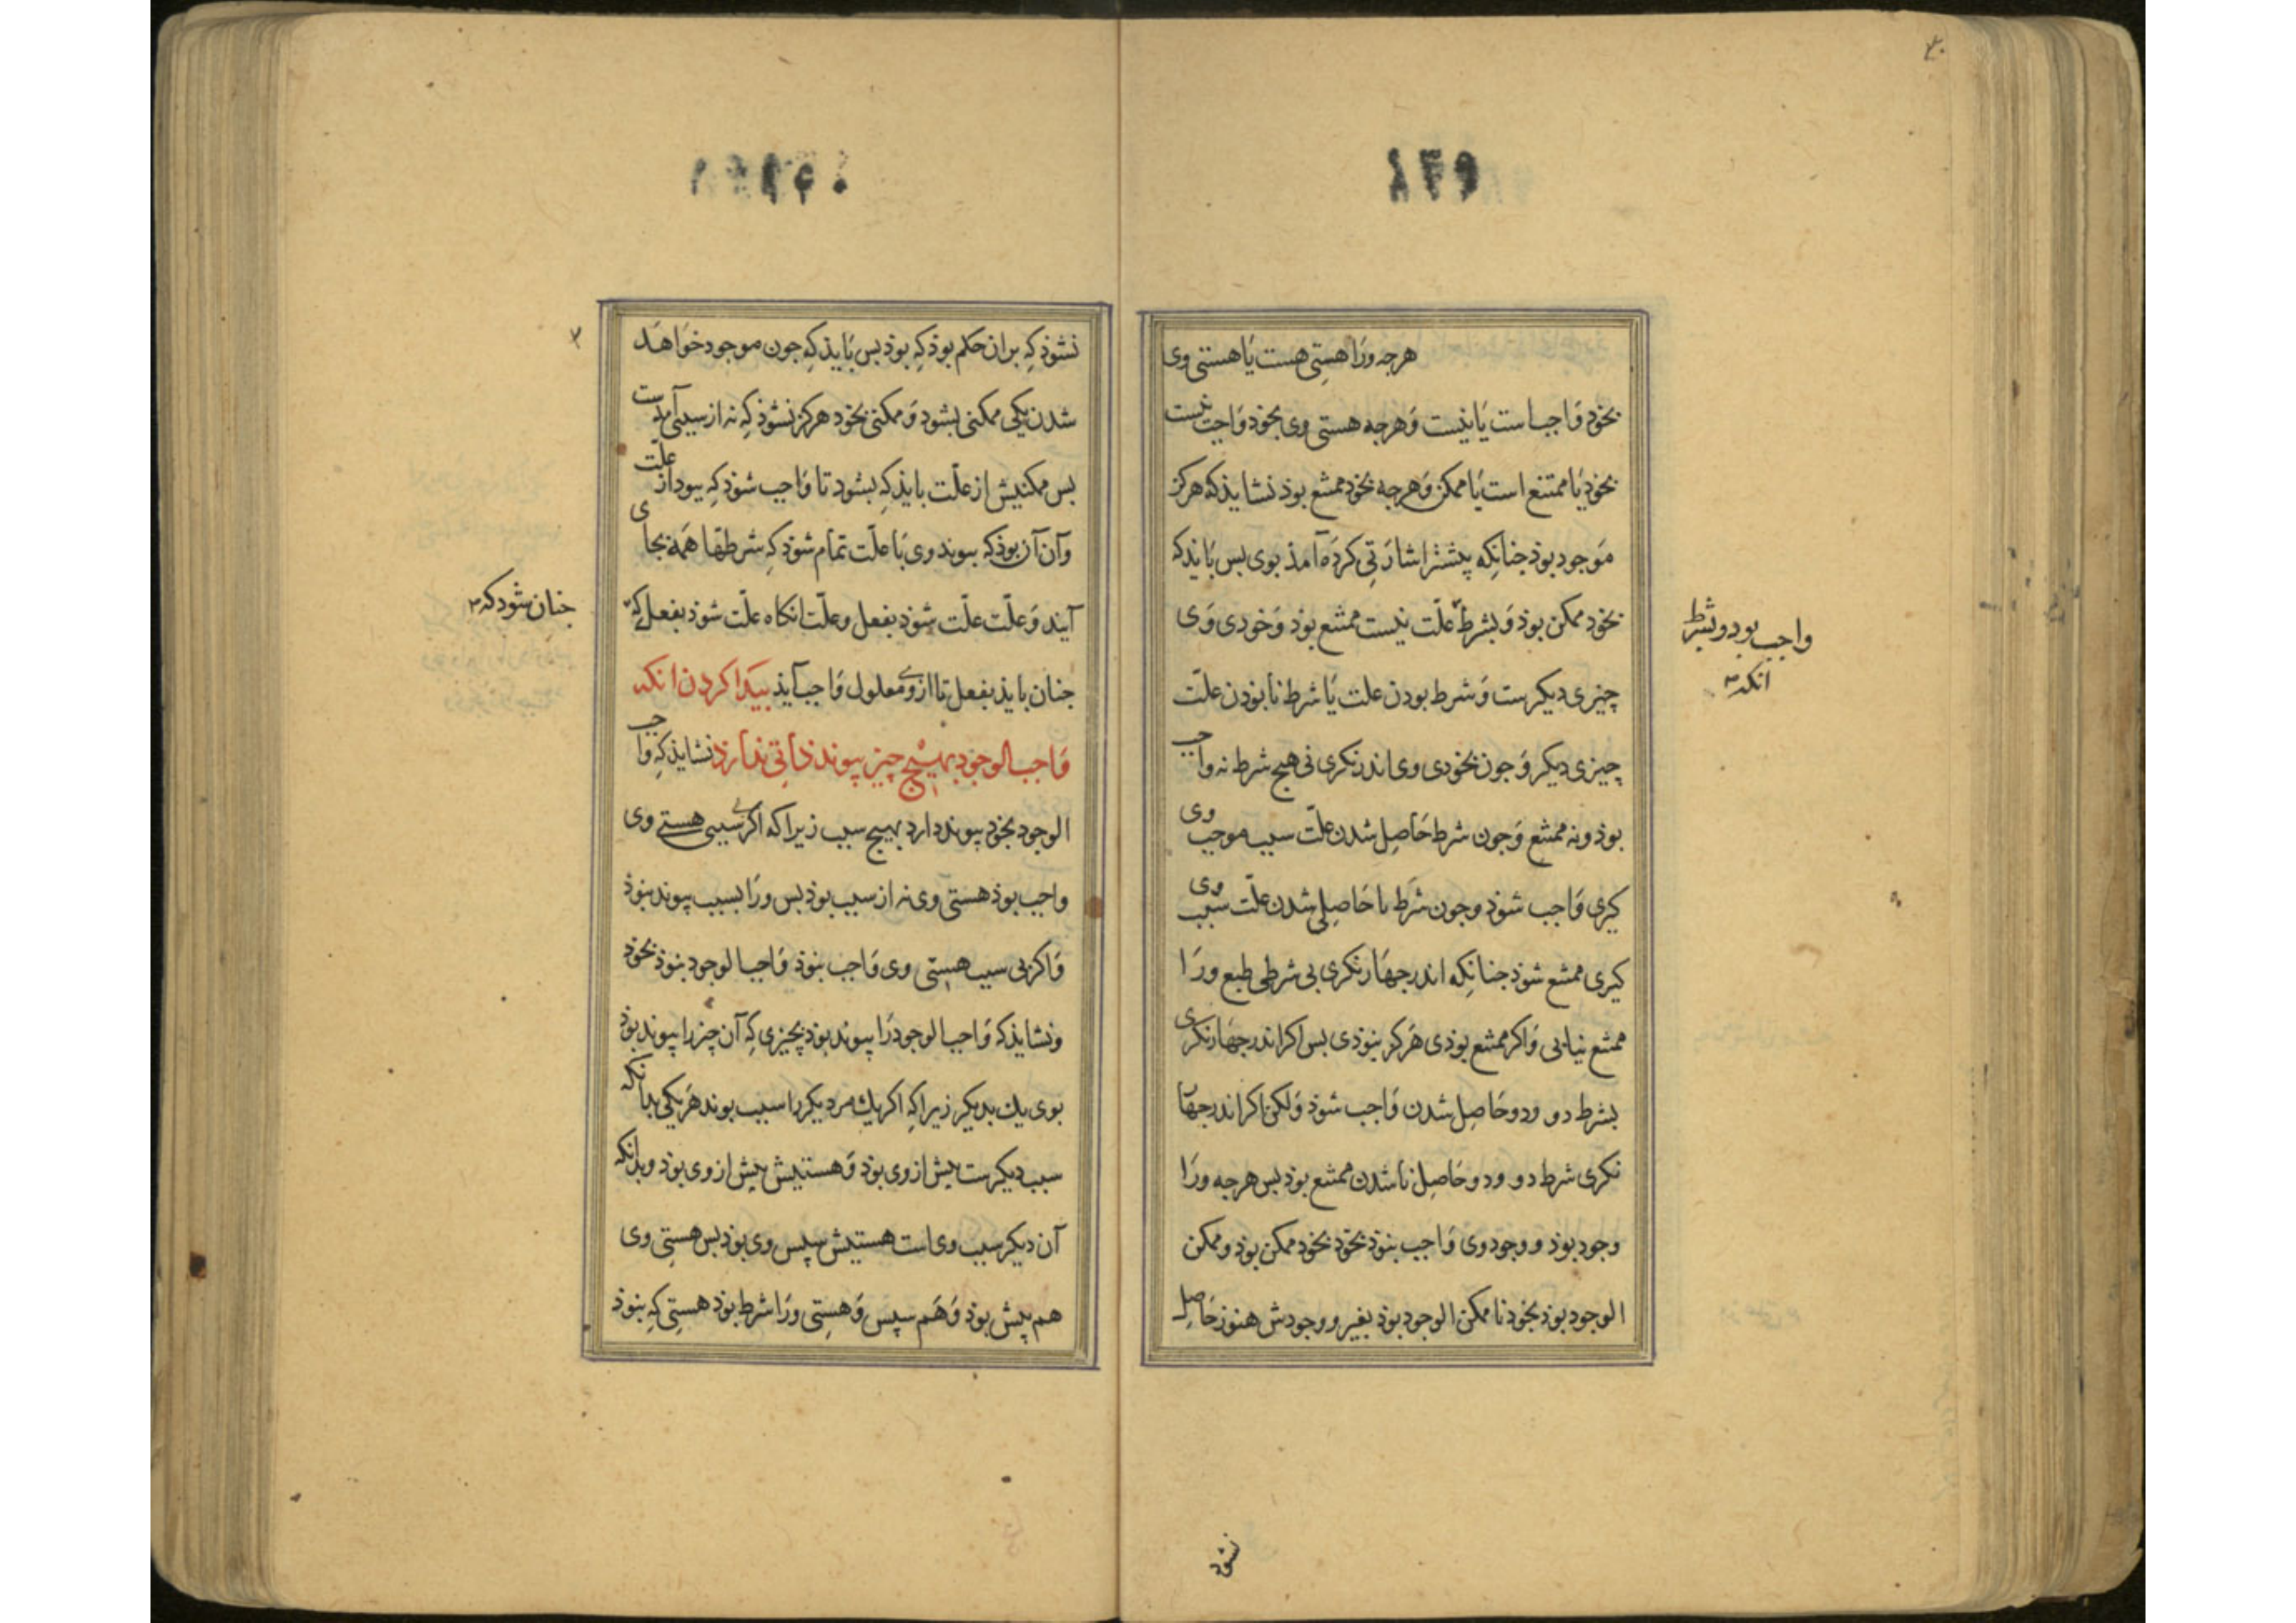 ۱۴۹
هرجه ورا هستی هست یا هستی وی
بخود واجب است یا نیست و هرجه هستی وی بخود واجب نیست
بخود یا ممتنع است یا ممکن و هرجه بخود ممتنع بوذ نشایذ که هرکز
موجود بوذ جنانکه پیشتر اشارتی کرده آمذ بوی بس بایذ که
بخود ممکن بوذ و بشرط علّت نیست ممتنع بوذ و خودی وی
واجب بود و بشرط
انکه
چیزی دیکرست و شرط بودن علت یا شرط نابوذن علّت
چیزی دیکر و جون بخودی وی اندر نکری نی هیچ شرط نه واجب
بوذ و نه ممتنع و جون شرط حاصل شدن علّت سبب موجب وی
کیری واجب شوذ و جون شرط نا حاصلی شدن علّت سبب وی
کیری ممتنع شوذ جنانکه اندر جهار نکری بی شرطی طبع ورا
ممتنع نیابی و اکر ممتنع بوذی هرکز نبوذی بس اکر اندر جهار نکری
بشرط دو و دو حاصل شدن واجب شوذ و لکن اکر اندر جهار
نکری شرط دو و دو حاصل ناشدن ممتنع بوذ بس هرجه ورا
وجود بوذ و وجود وی واجب نبوذ بخود بخود ممکن بوذ و ممکن
الوجود بوذ بخود نا ممکن الوجود بوذ بغیر و وجودش هنوز حاصل
نشود
نشوذ که بران حکم بوذ که بوذ بس بایذ که جون موجود خواهد
شدن یکی ممکنی بشود و ممکنی بخود هرکز نشوذ که نه از سببی آمدست
بس ممکنیش از علّت بایذ که بشود تا واجب شوذ که ببود از علّت
وآن آن بوذ که بیوند وی با علّت تمام شوذ که شرطها همه بجای
آیند و علّت علّت شوذ بفعل و علّت انکاه علّت شوذ بفعل که
جنان شود که
جنان بایذ بفعل تا از وی معلول واجب آیذ بیدا کردن انکه
واجب الوجود بهیچ چیز بیوند ذاتی ندارذ نشایذ که واجب
الوجود بخود بیوند دارد بهیچ سبب زیرا که اکر بی سببی هستی وی
واجب بوذ هستی وی نه از سبب بوذ بس ورا بسبب بیوند نبوذ
و اکر بی سبب هستی وی واجب نبوذ واجب الوجود نبوذ بخود
و نشایذ که واجب الوجود را بیوند بوذ بچیزی که آن چیز را بیوند بوذ
بوی یک بدیکر زیرا که اکر یک مر دیکر را سبب بوند هر یکی بدانکه
سبب دیکرست پیش از وی بوذ و هستیش پیش از وی بوذ و بدانکه
آن دیکر سبب وی است هستیش سپس وی بوذ بس هستی وی
هم پیش بوذ و هم سپس و هستی ورا شرط بوذ هستی که نبوذ